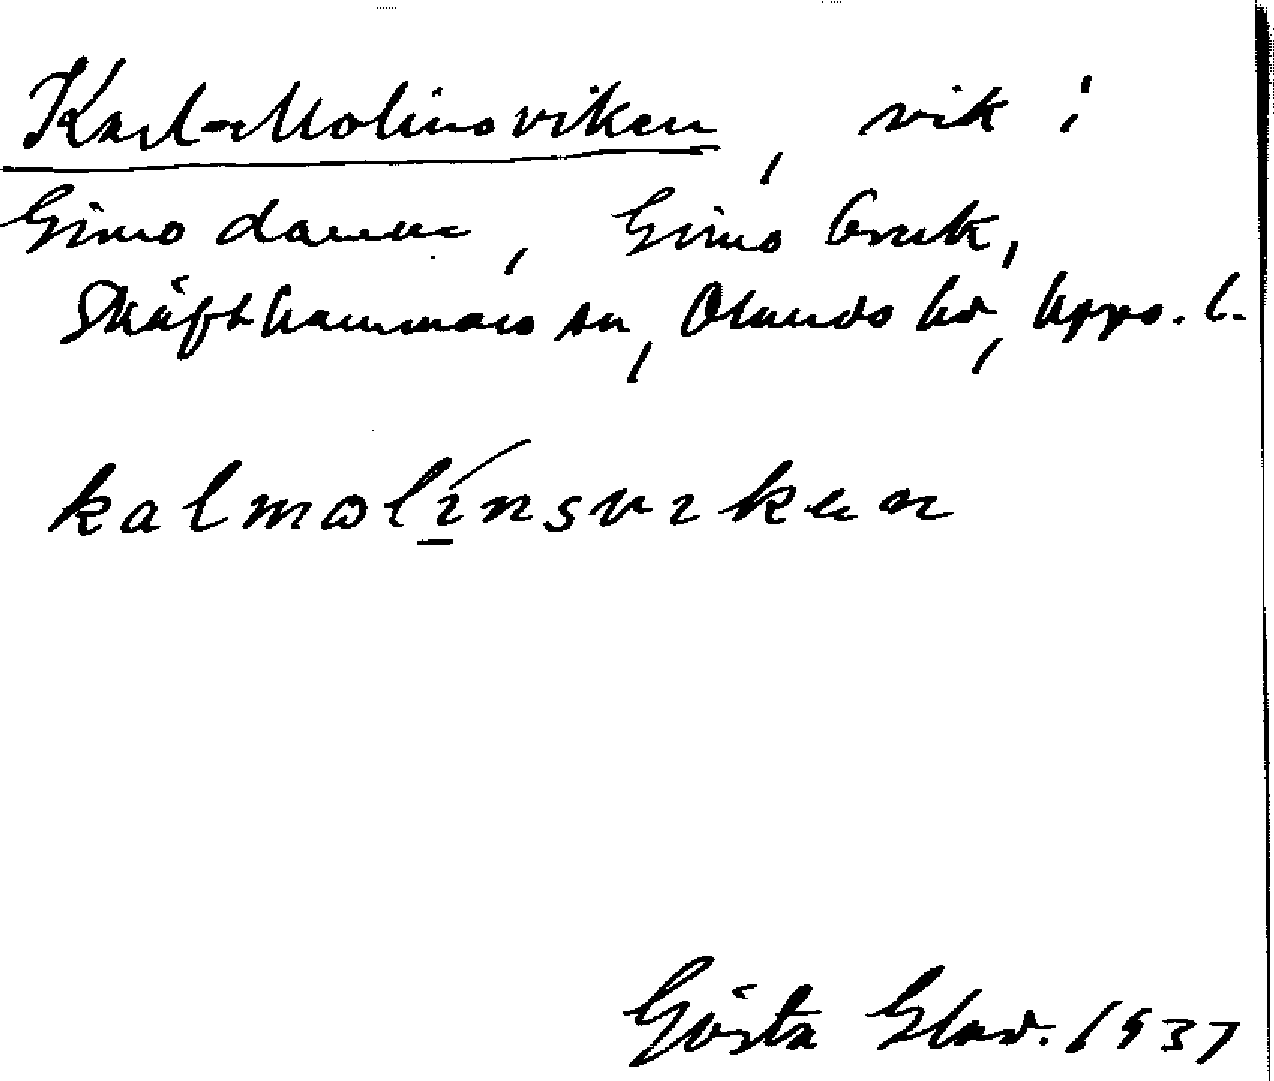 Karl-Molinsviken, vik i
Gimo damm, Gimo bruk,
Skäfthammars sn, Olands hd, Upps. l.
kalmolínsviken
Gösta Elov. 1937